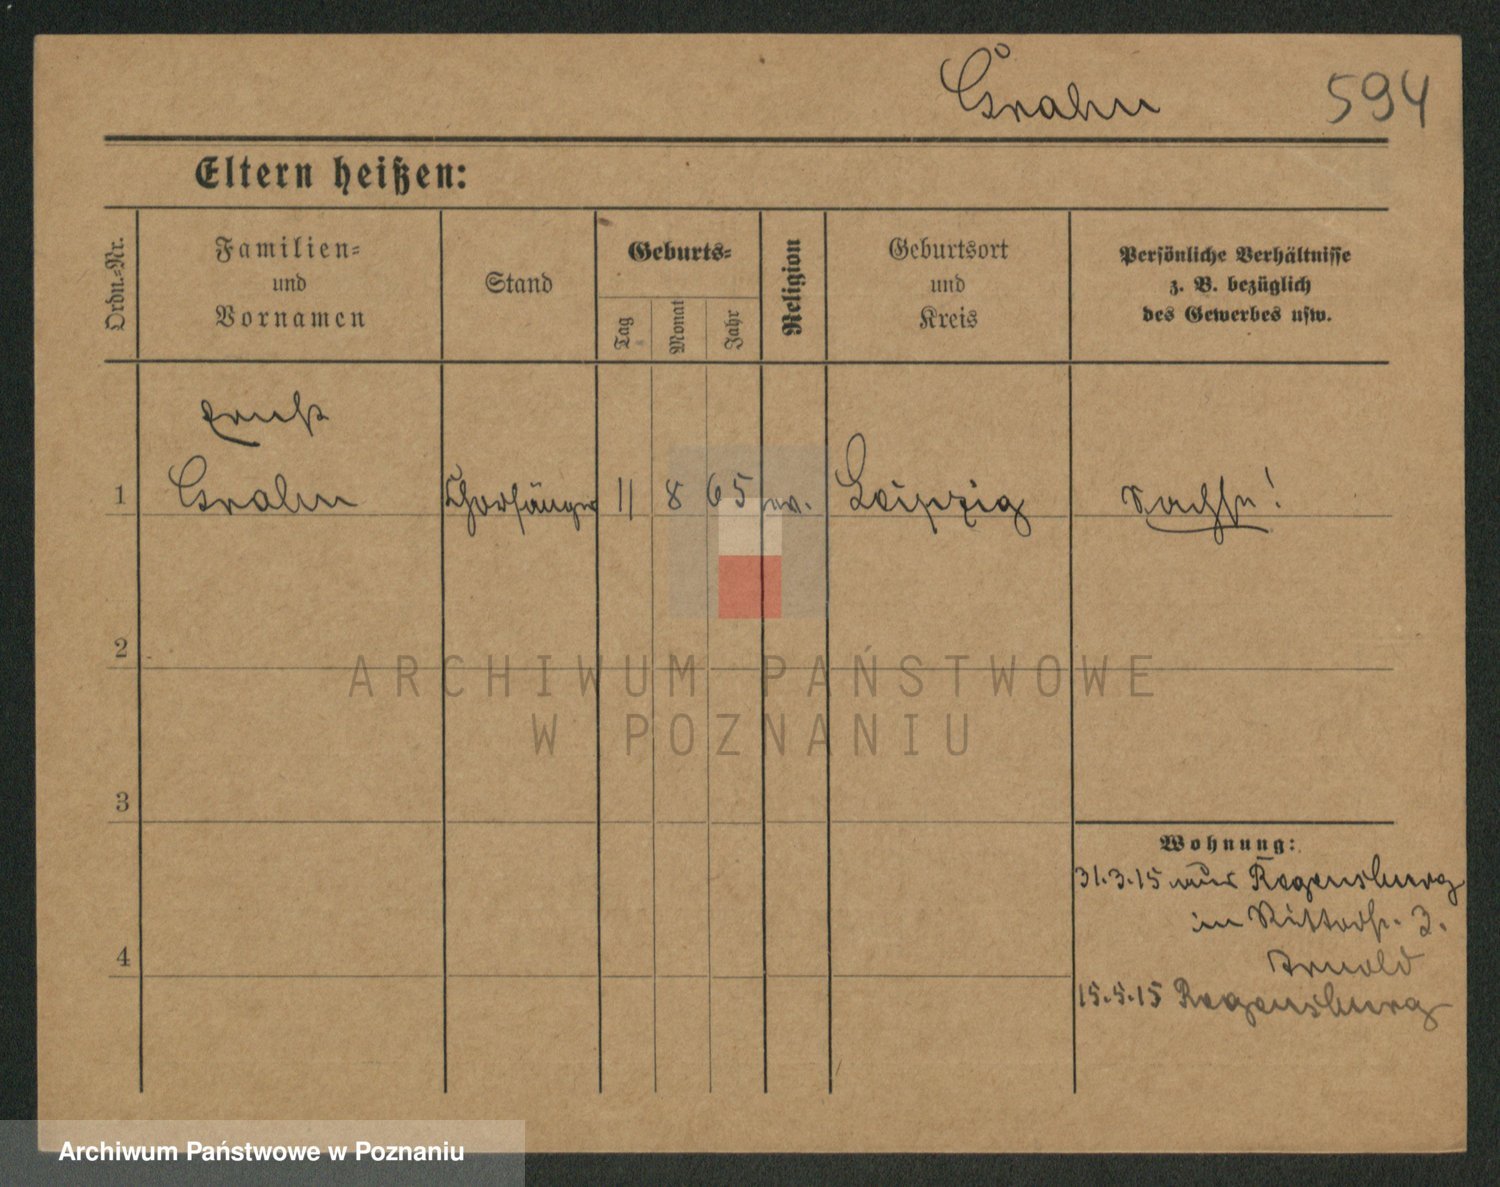 Grahn 594
Eltern heißen:
Ordn.-Nr.
Familien-
und
Vornamen
Stand
Geburts-
Tag
Monat
Jahr
Religion
Geburtsort
und
Kreis
Persönliche Verhältnisse
z. B. bezüglich
des Gewerbes usw.
Ernst
1 Grahn Chorsänger 11 8 65 ev. Leipzig Sachse!
2
3
4
Wohnung:
31.3.15 aus Regensburg
in Ritterstr. 3.
Arnold
15.5.15 Regensburg
ARCHIWUM PAŃSTWOWE
W POZNANIU
Archiwum Państwowe w Poznaniu